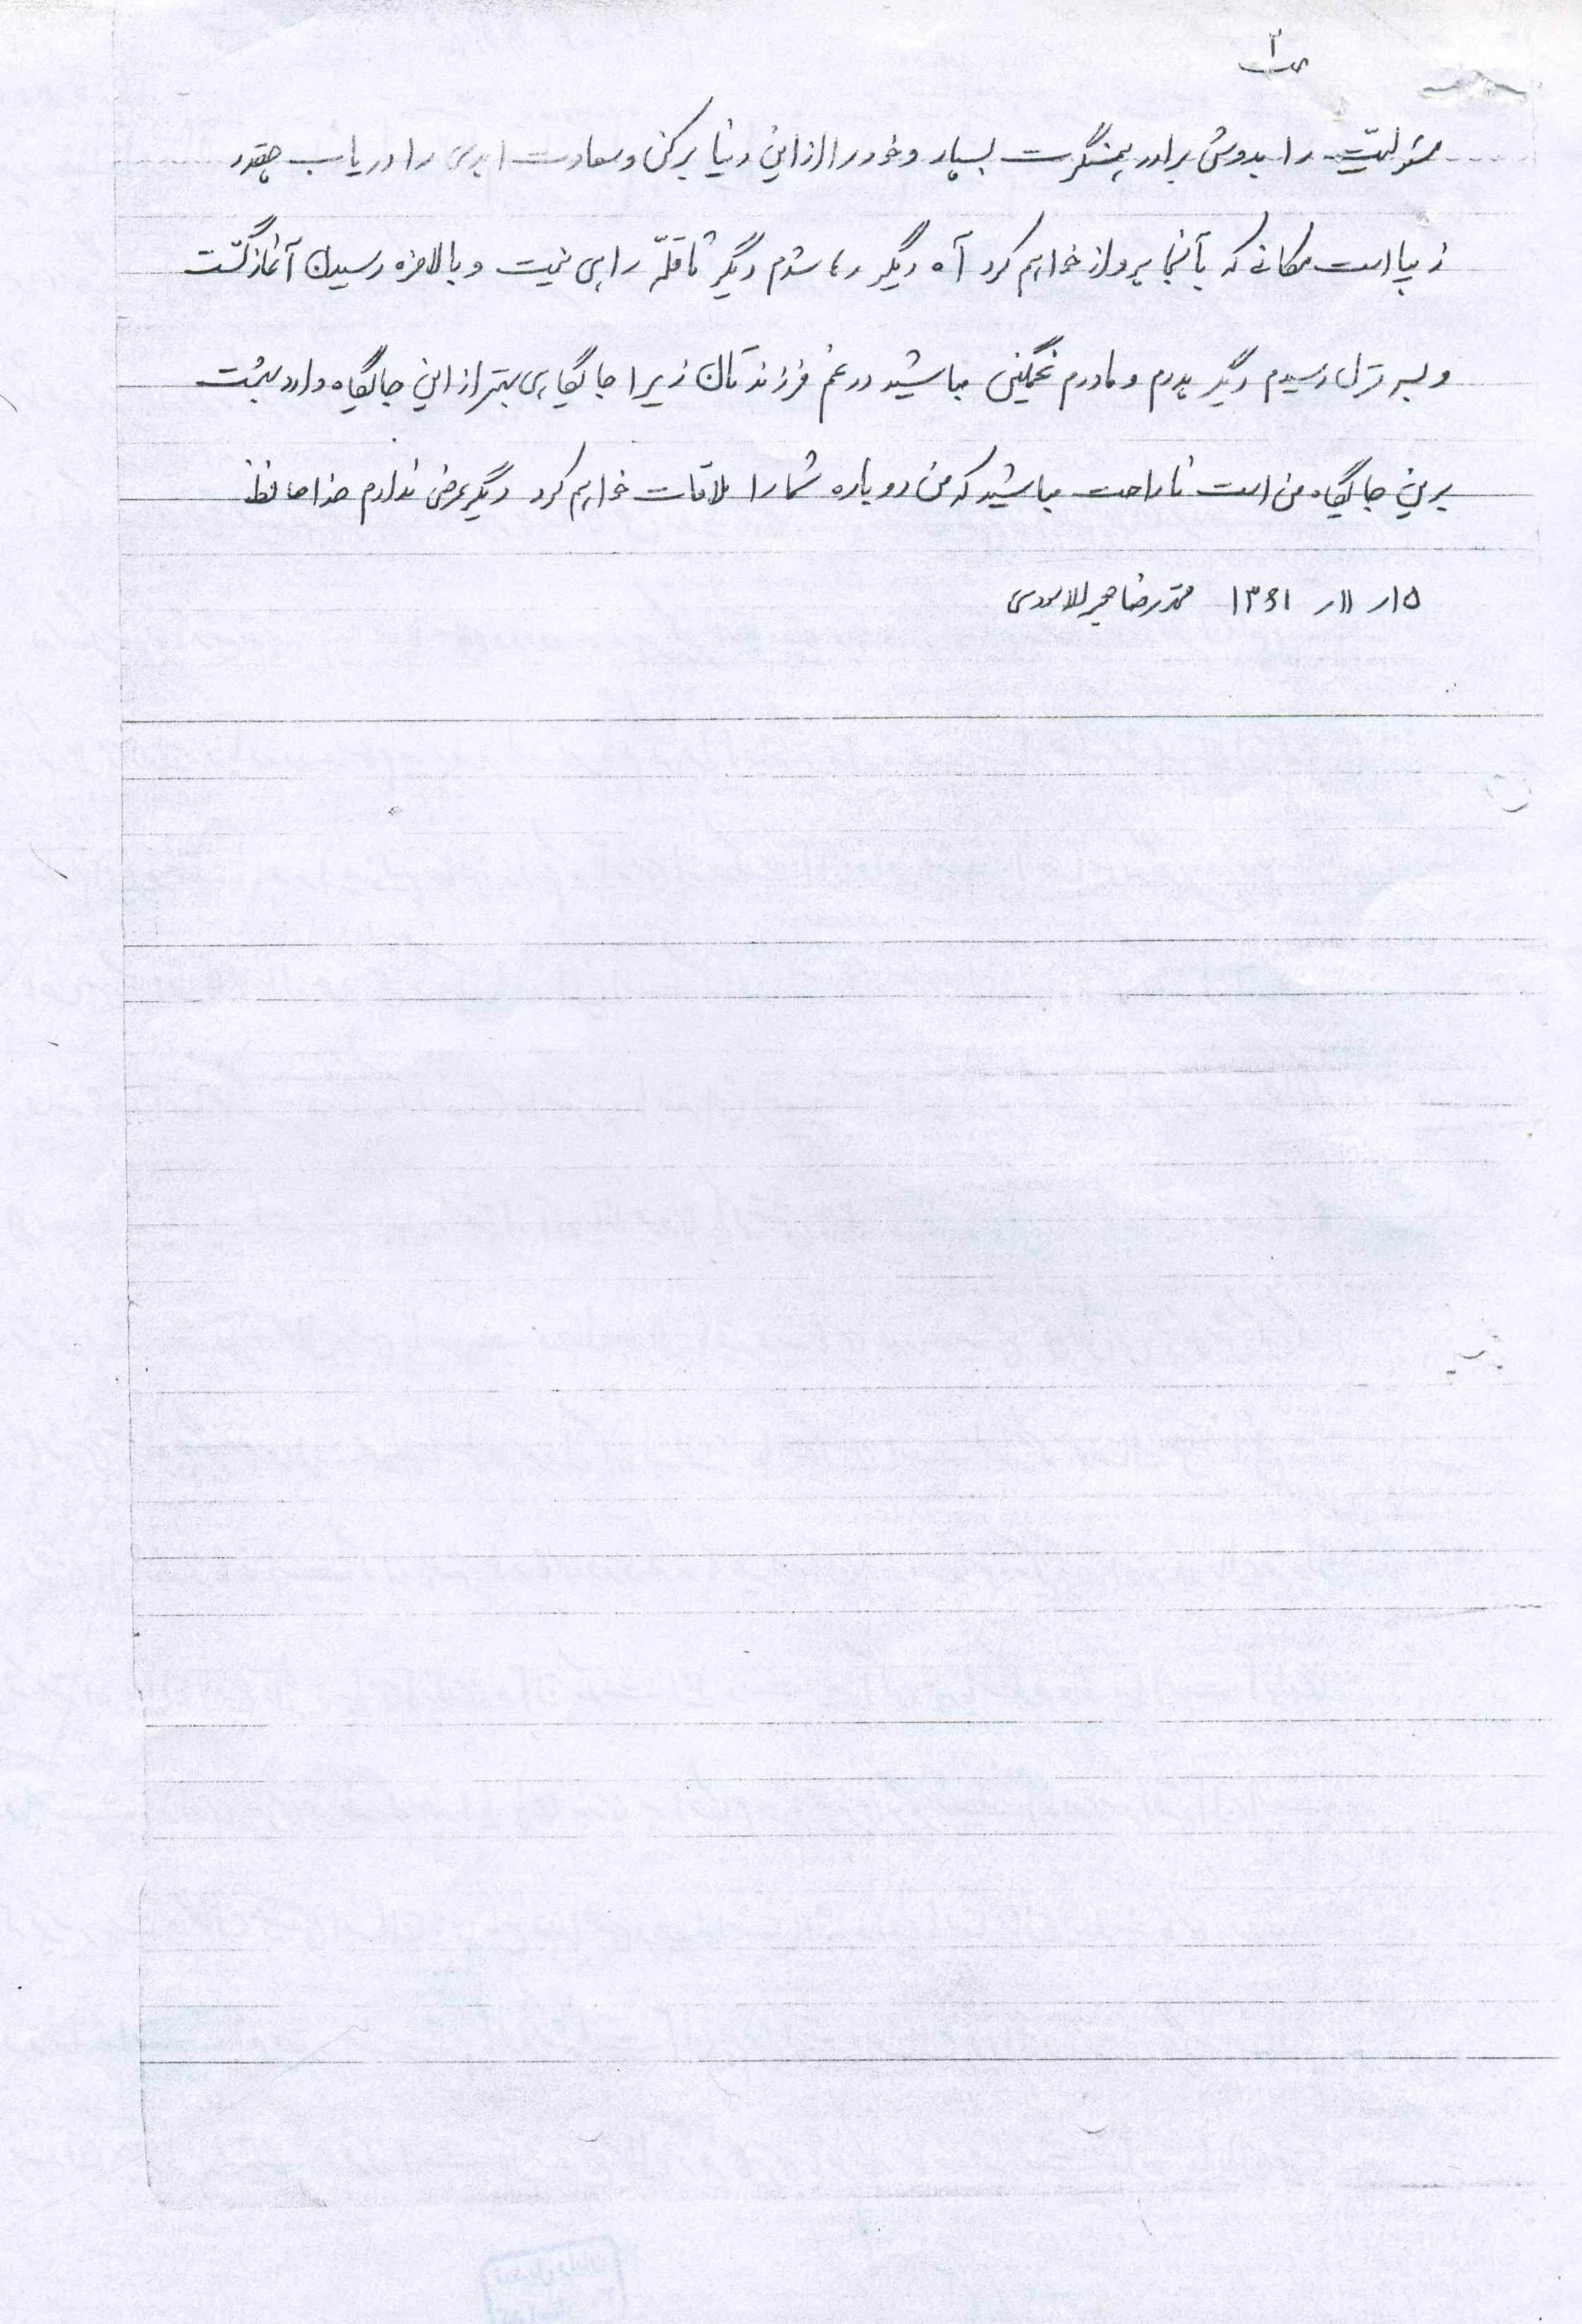 ص ۲
مسئولیّت را بدوش برادر همسنگرت بسپار و خود را از این دنیا برکن و سعادت ابدی را دریاب چقدر
زیبا است مکانی که بآنجا پرواز خواهم کرد آه دیگر رها شدم دیگر تا قلّه راهی نیست و بالاخره رسیدن آغاز گشت
و رسیدم دیگر پدرم و مادرم غمگین مباشید در غم فرزندتان زیرا جایگاهی بهتر از این جایگاه دارد بهشت
برین جایگاه من است ناراحت مباشید که من دوباره شما را ملاقات خواهم کرد دیگر عرضی ندارم خداحافظ
۱۵ر ۱۱ر ۱۳۶۱ محمدرضا